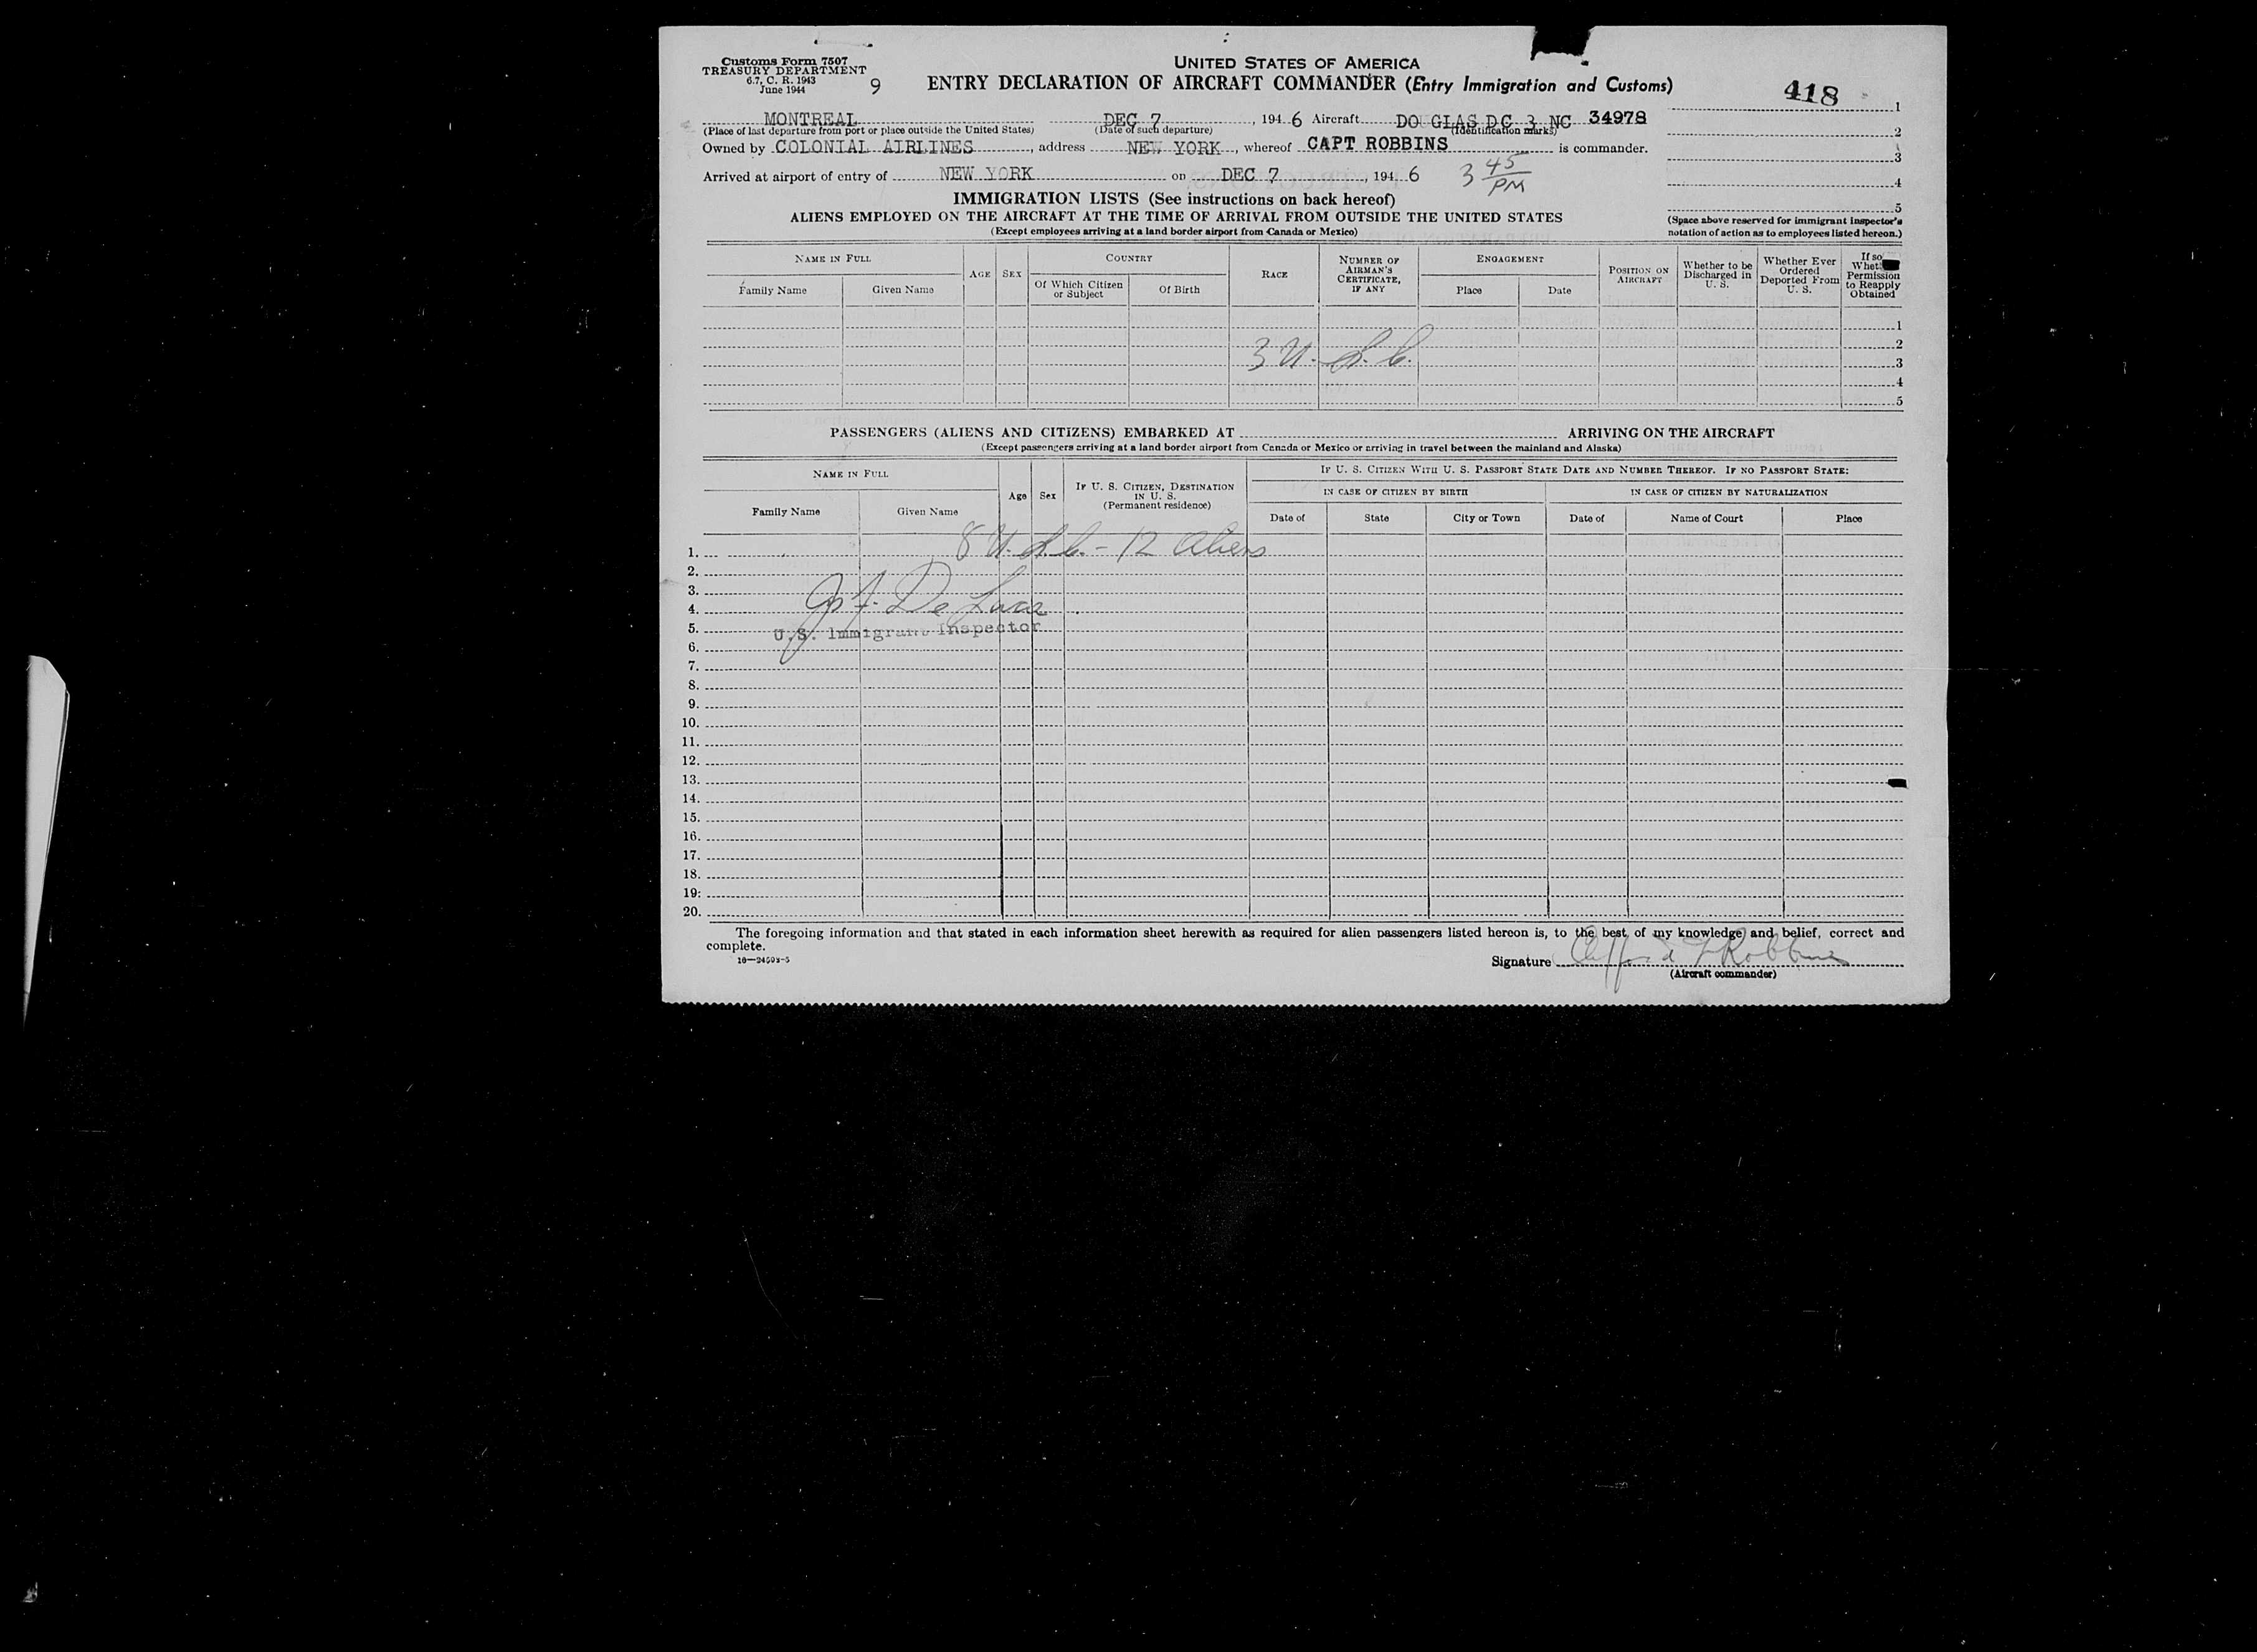 Customs Form 7507
TREASURY DEPARTMENT
6.7, C. R. 1943
June 1944
9
UNITED STATES OF AMERICA
ENTRY DECLARATION OF AIRCRAFT COMMANDER (Entry Immigration and Customs)
418
MONTREAL DEC 7, 194 6 Aircraft DOUGLAS DC 3 NC 34978
(Place of last departure from port or place outside the United States) (Date of such departure) (Identification marks)
Owned by COLONIAL AIRLINES, address NEW YORK, whereof CAPT ROBBINS is commander.
Arrived at airport of entry of NEW YORK on DEC 7, 194 6 3 45 PM
1
2
3
4
5
(Space above reserved for immigrant inspector's
notation of action as to employees listed hereon.)
IMMIGRATION LISTS (See instructions on back hereof)
ALIENS EMPLOYED ON THE AIRCRAFT AT THE TIME OF ARRIVAL FROM OUTSIDE THE UNITED STATES
(Except employees arriving at a land border airport from Canada or Mexico)
NAME IN FULL
Family Name Given Name
AGE SEX
COUNTRY
Of Which Citizen or Subject Of Birth
RACE
NUMBER OF AIRMAN'S CERTIFICATE, IF ANY
ENGAGEMENT
Place Date
POSITION ON AIRCRAFT
Whether to be Discharged in U. S.
Whether Ever Ordered Deported From U. S.
If so Permission to Reapply Obtained
1
2
3 U. S. C.
3
4
5
PASSENGERS (ALIENS AND CITIZENS) EMBARKED AT ARRIVING ON THE AIRCRAFT
(Except passengers arriving at a land border airport from Canada or Mexico or arriving in travel between the mainland and Alaska)
NAME IN FULL
Family Name Given Name
Age Sex
IF U. S. CITIZEN, DESTINATION IN U. S.
(Permanent residence)
IF U. S. CITIZEN WITH U. S. PASSPORT STATE DATE AND NUMBER THEREOF. IF NO PASSPORT STATE:
IN CASE OF CITIZEN BY BIRTH IN CASE OF CITIZEN BY NATURALIZATION
Date of State City or Town Date of Name of Court Place
8 U. S. C. - 12 Aliens
1.
2.
3.
De Luca
4.
5. U.S. Immigrant Inspector
6.
7.
8.
9.
10.
11.
12.
13.
14.
15.
16.
17.
18.
19.
20.
The foregoing information and that stated in each information sheet herewith as required for alien passengers listed hereon is, to the best of my knowledge and belief, correct and
complete.
16—24593-5
Signature Clifford F Robbins
(Aircraft commander)